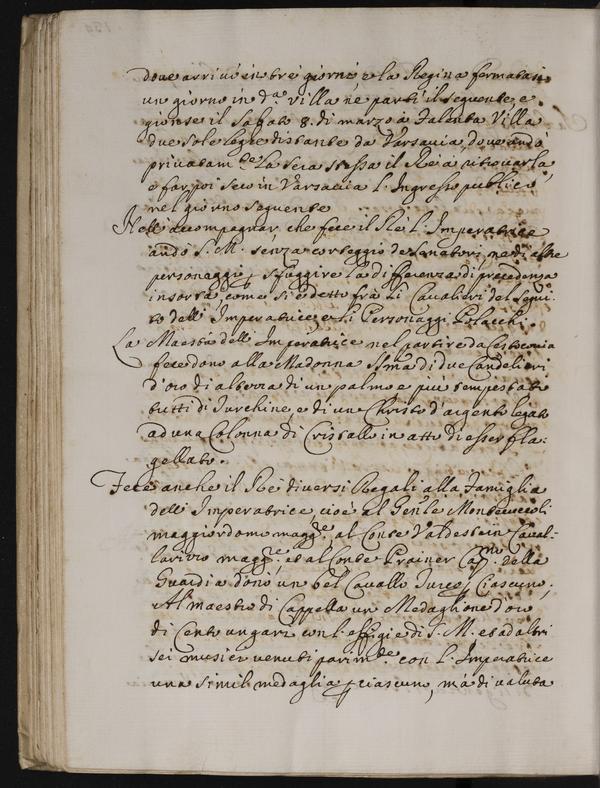 dove arrivò in tre giorni, e la Regina fermatasi
un giorno in d.ª Villa ne partì il seguente, e
giunse il Sabato 8. di marzo à Falenta Villa
due sole leghe distante da Varsavia, dove andò
privatam.te la sera stessa il Rè à ritrovarla
e far poi seco in Varsavia l'Ingresso publico
nel giorno seguente
Nell'accompagnar che fece il Rè l'Imperatrice
andò S. M. senza corteggio de Senatori, ne di altri
personaggi p sfuggire la differenza di precedenza
insorta, come si è detto frà li Cavalieri del Segui-
to dell'Imperatrice, e li Personaggi Polacchi.
La Maestà dell'Imperatrice nel partire da Cestocovia
fece dono alla Madonna SSma di due Candelieri
d'oro di altezza di un palmo e più tempestati
tutti di Turchine, e di un Christo d'argento legato
ad una Colonna di Cristallo in atto di esser fla-
gellato.
Fece anche il Rè diversi Regali alla Famiglia
dell'Imperatrice cioè al Gen.le Montecuccoli
maggiordomo magg.re, al Conte Valdestein Caval-
larizzo magg.re et al Conte Prainer Cap.no della
Guardia donò un bel Cavallo Turco p Ciascuno;
Al maestro di Cappella un Medaglione d'oro
di Cento ungari con l'effigie di S. M. et ad altri
sei musici venuti parim.te con l'Imperatrice
una simil medaglia p ciascuno, mà di valuta